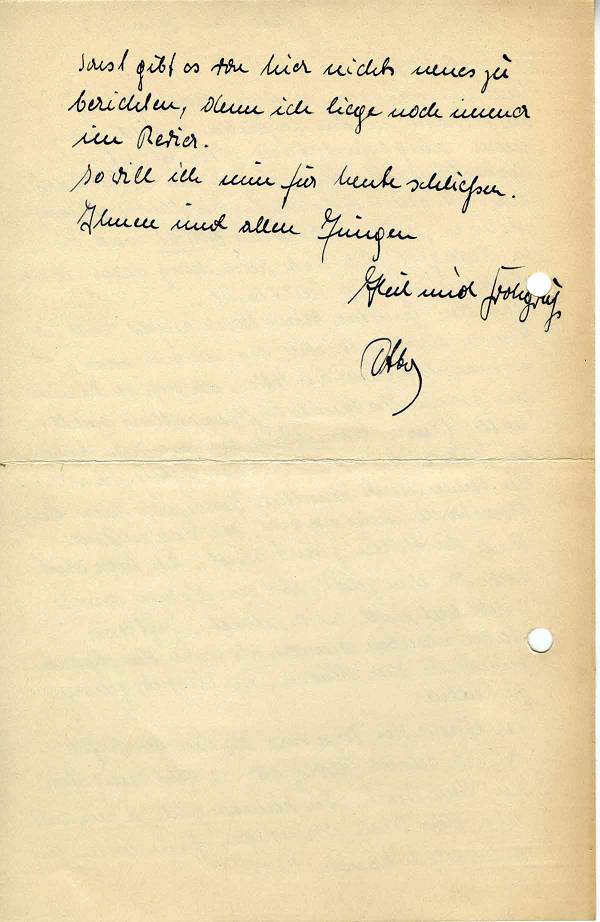 sonst gibt es von hier nichts neues zu
berichten, denn ich liege noch immer
im Revier.
So will ich nun für heute schließen.
Ihnen und allen Jungen
Heil und Frohgruß